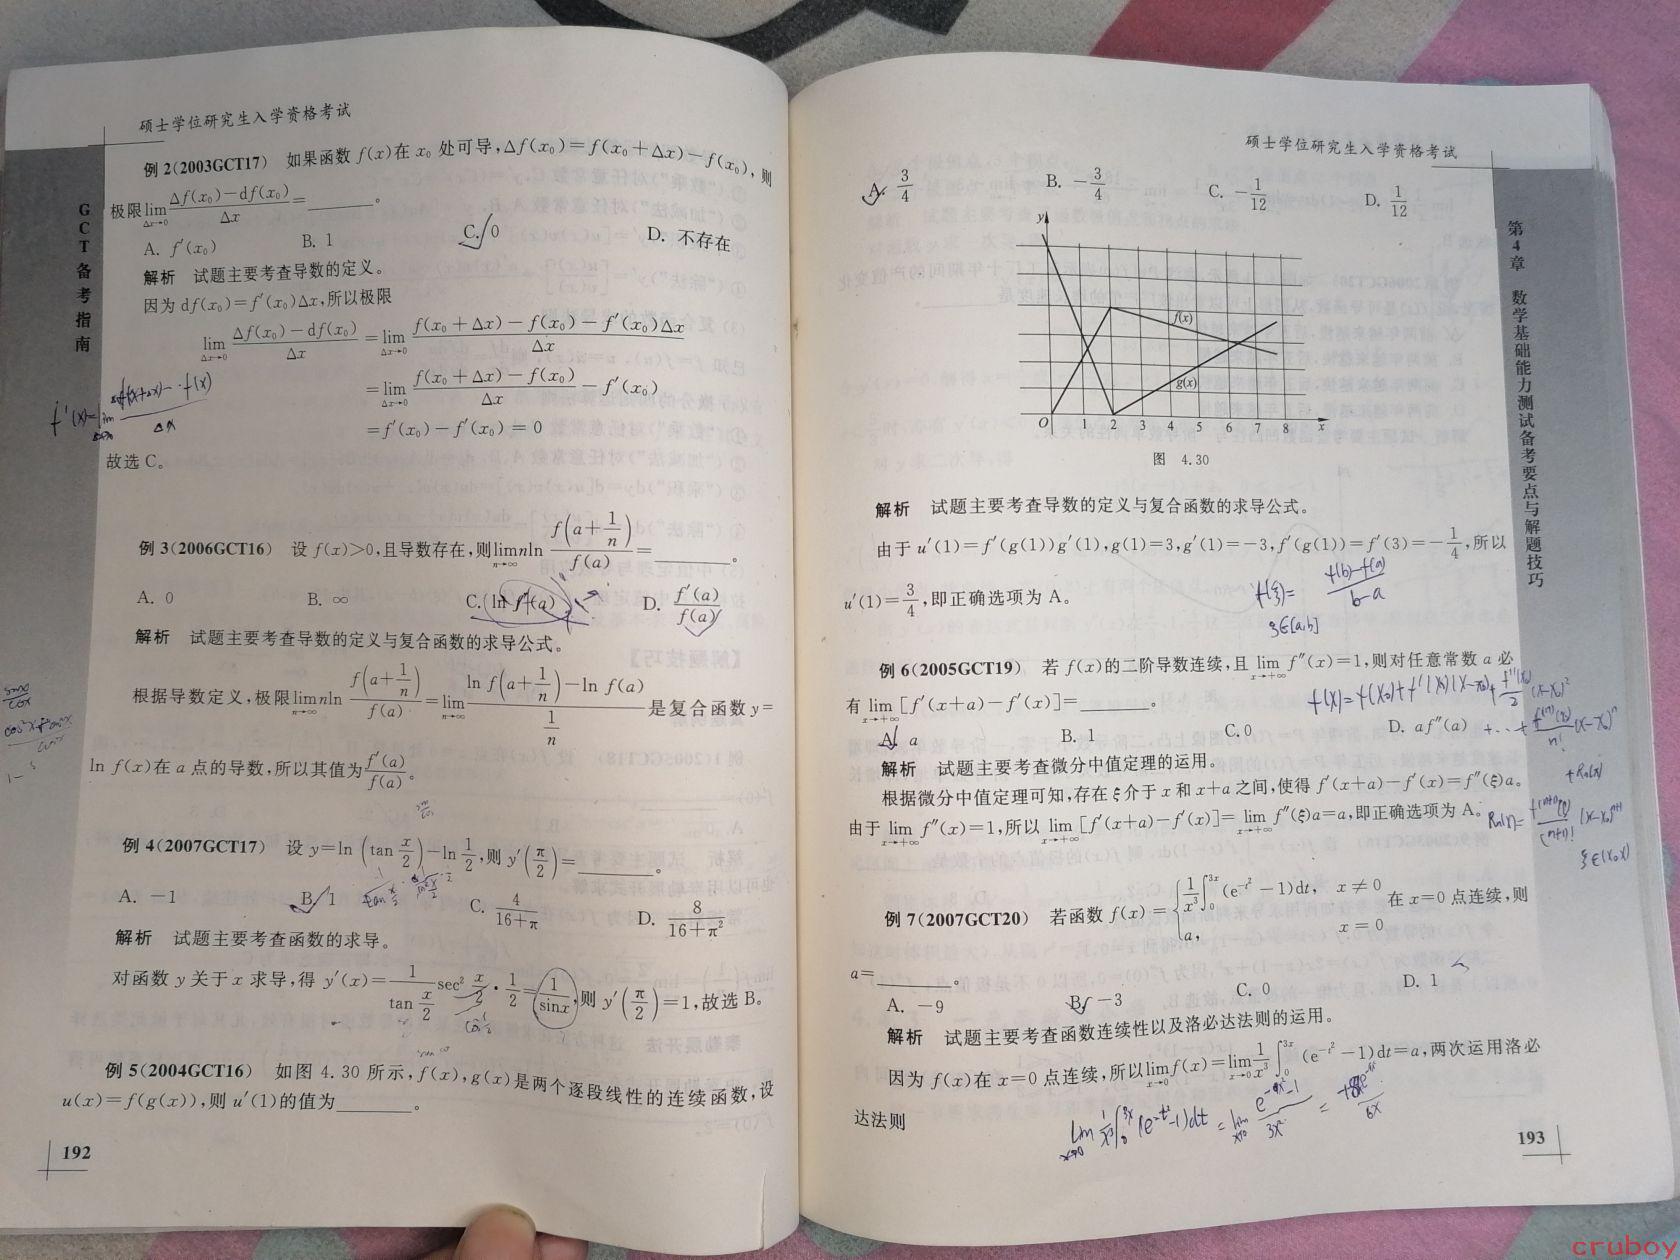 硕士学位研究生入学资格考试
GCT备考指南
例 2(2003GCT17) 如果函数 f(x)在 x₀ 处可导,Δf(x₀)=f(x₀+Δx)-f(x₀), 则
极限lim_{Δx→0} (Δf(x₀)-df(x₀))/Δx=______。
A. f′(x₀) B. 1 C. 0 D. 不存在
解析 试题主要考查导数的定义。
因为 df(x₀)=f′(x₀)Δx,所以极限
lim_{Δx→0} (Δf(x₀)-df(x₀))/Δx =lim_{Δx→0} (f(x₀+Δx)-f(x₀)-f′(x₀)Δx)/Δx
=lim_{Δx→0} (f(x₀+Δx)-f(x₀))/Δx -f′(x₀)
=f′(x₀)-f′(x₀)=0
故选 C。
例 3(2006GCT16) 设 f(x)>0,且导数存在,则lim_{n→∞} n ln (f(a+1/n))/(f(a))=______。
A. 0 B. ∞ C. (ln f(a))′ D. f′(a)/f(a)
解析 试题主要考查导数的定义与复合函数的求导公式。
根据导数定义,极限lim_{n→∞} n ln (f(a+1/n))/(f(a))=lim_{n→∞} (ln f(a+1/n)-ln f(a))/(1/n) 是复合函数 y=
ln f(x)在 a 点的导数,所以其值为 f′(a)/f(a)。
例 4(2007GCT17) 设 y=ln(tan x/2)-ln 1/2,则 y′(π/2)=______。
A. -1 B. 1 C. 4/(16+π) D. 8/(16+π²)
解析 试题主要考查函数的求导。
对函数 y 关于 x 求导,得 y′(x)=1/(tan x/2) sec² x/2 · 1/2=1/sinx,则 y′(π/2)=1,故选 B。
例 5(2004GCT16) 如图 4.30 所示,f(x),g(x)是两个逐段线性的连续函数,设
u(x)=f(g(x)),则 u′(1)的值为______。
192
硕士学位研究生入学资格考试
第4章 数学基础能力测试备考要点与解题技巧
A. 3/4 B. -3/4 C. -1/12 D. 1/12
y
f(x)
g(x)
O 1 2 3 4 5 6 7 8 x
图 4.30
解析 试题主要考查导数的定义与复合函数的求导公式。
由于 u′(1)=f′(g(1))g′(1),g(1)=3,g′(1)=-3,f′(g(1))=f′(3)=-1/4,所以
u′(1)=3/4,即正确选项为 A。
f′(ξ)= (f(b)-f(a))/(b-a)
ξ∈[a,b]
例 6(2005GCT19) 若 f(x)的二阶导数连续,且 lim_{x→+∞} f″(x)=1,则对任意常数 a 必
有 lim_{x→+∞} [f′(x+a)-f′(x)]=______。
A. a B. 1 C. 0 D. af″(a)
解析 试题主要考查微分中值定理的运用。
根据微分中值定理可知,存在 ξ 介于 x 和 x+a 之间,使得 f′(x+a)-f′(x)=f″(ξ)a。
由于 lim_{x→+∞} f″(x)=1,所以 lim_{x→+∞} [f′(x+a)-f′(x)]= lim_{x→+∞} f″(ξ)a=a,即正确选项为 A。
例 7(2007GCT20) 若函数 f(x)={ 1/x³ ∫₀^{3x} (e^{-t²}-1)dt, x≠0; a, x=0 在 x=0 点连续,则
a=______。
A. -9 B. -3 C. 0 D. 1
解析 试题主要考查函数连续性以及洛必达法则的运用。
因为 f(x)在 x=0 点连续,所以lim_{x→0} f(x)=lim_{x→0} 1/x³ ∫₀^{3x} (e^{-t²}-1)dt=a,两次运用洛必
达法则
193
cruboy